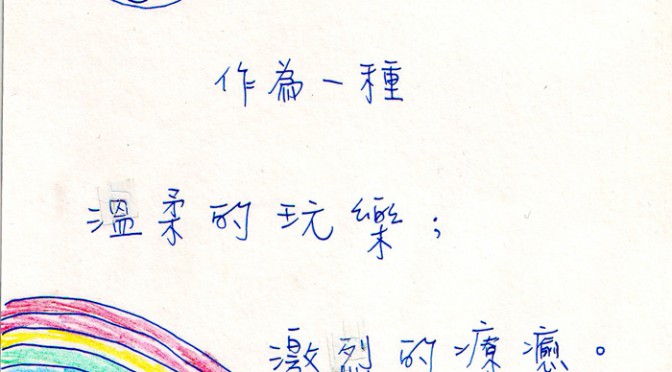 作為一種
溫柔的玩樂；
激烈的療癒。